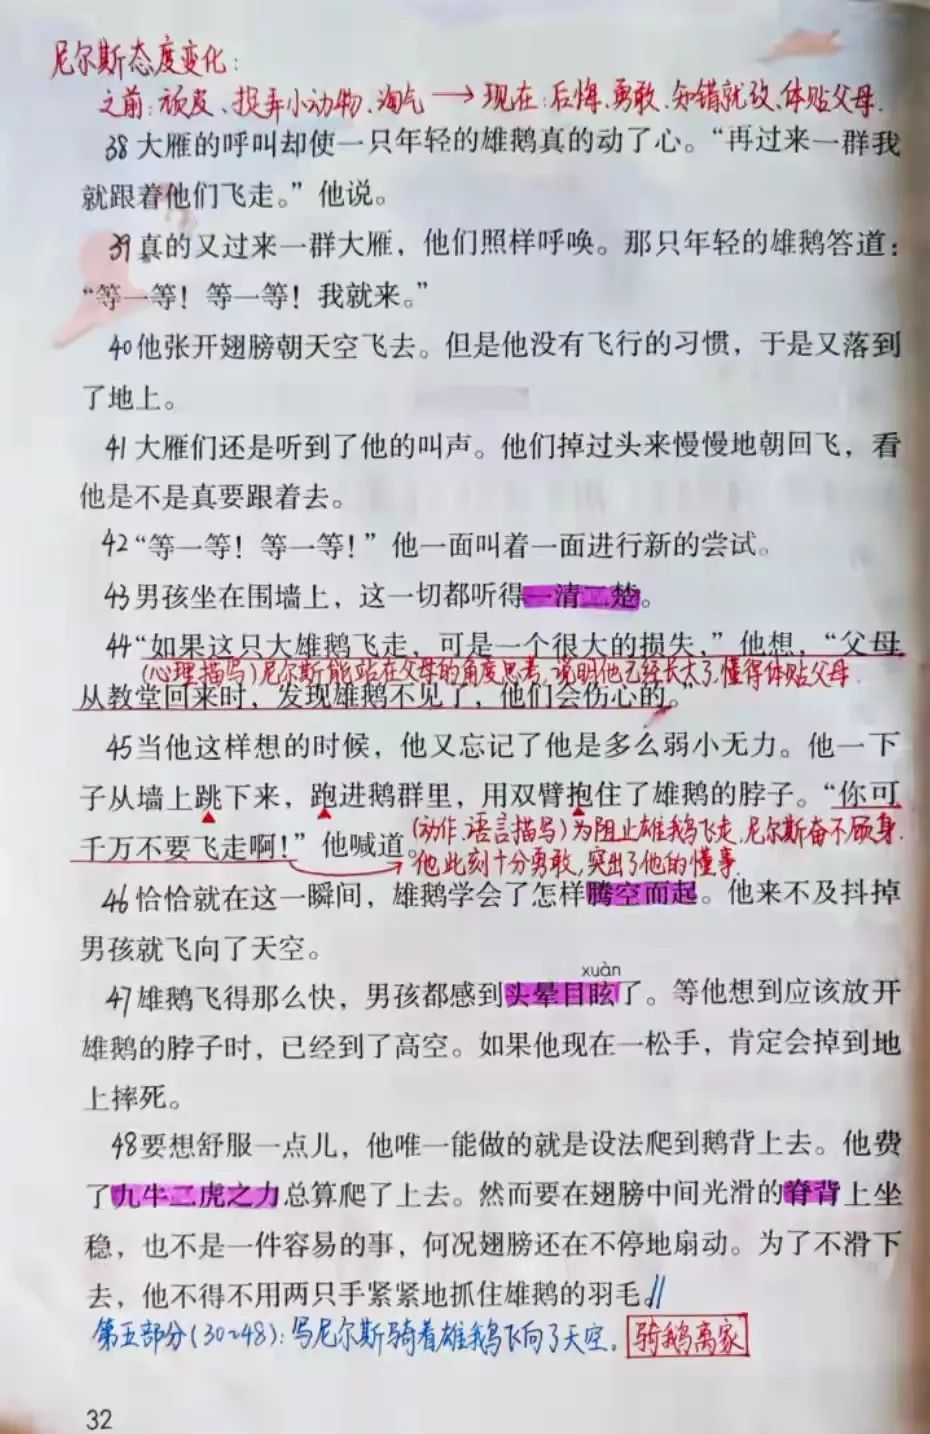 尼尔斯态度变化:
之前:顽皮、捉弄小动物、淘气→现在:后悔、勇敢、知错就改、体贴父母.
38大雁的呼叫却使一只年轻的雄鹅真的动了心。“再过来一群我
就跟着他们飞走。”他说。
39真的又过来一群大雁，他们照样呼唤。那只年轻的雄鹅答道：
“等一等！等一等！我就来。”
40他张开翅膀朝天空飞去。但是他没有飞行的习惯，于是又落到
了地上。
41大雁们还是听到了他的叫声。他们掉过头来慢慢地朝回飞，看
他是不是真要跟着去。
42“等一等！等一等！”他一面叫着一面进行新的尝试。
43男孩坐在围墙上，这一切都听得一清二楚。
44“如果这只大雄鹅飞走，可是一个很大的损失，”他想，“父母
(心理描写)尼尔斯能站在父母的角度思考,说明他已经长大了,懂得体贴父母.
从教堂回来时，发现雄鹅不见了，他们会伤心的。”
45当他这样想的时候，他又忘记了他是多么弱小无力。他一下
子从墙上跳下来，跑进鹅群里，用双臂抱住了雄鹅的脖子。“你可
(动作、语言描写)为阻止雄鹅飞走,尼尔斯奋不顾身.
千万不要飞走啊！”他喊道。
他此刻十分勇敢,突出了他的懂事.
46恰恰就在这一瞬间，雄鹅学会了怎样腾空而起。他来不及抖掉
男孩就飞向了天空。
xuàn
47雄鹅飞得那么快，男孩都感到头晕目眩了。等他想到应该放开
雄鹅的脖子时，已经到了高空。如果他现在一松手，肯定会掉到地
上摔死。
48要想舒服一点儿，他唯一能做的就是设法爬到鹅背上去。他费
了九牛二虎之力总算爬了上去。然而要在翅膀中间光滑的脊背上坐
稳，也不是一件容易的事，何况翅膀还在不停地扇动。为了不滑下
去，他不得不用两只手紧紧地抓住雄鹅的羽毛。//
第五部分(30~48):写尼尔斯骑着雄鹅飞向了天空. 骑鹅离家
32